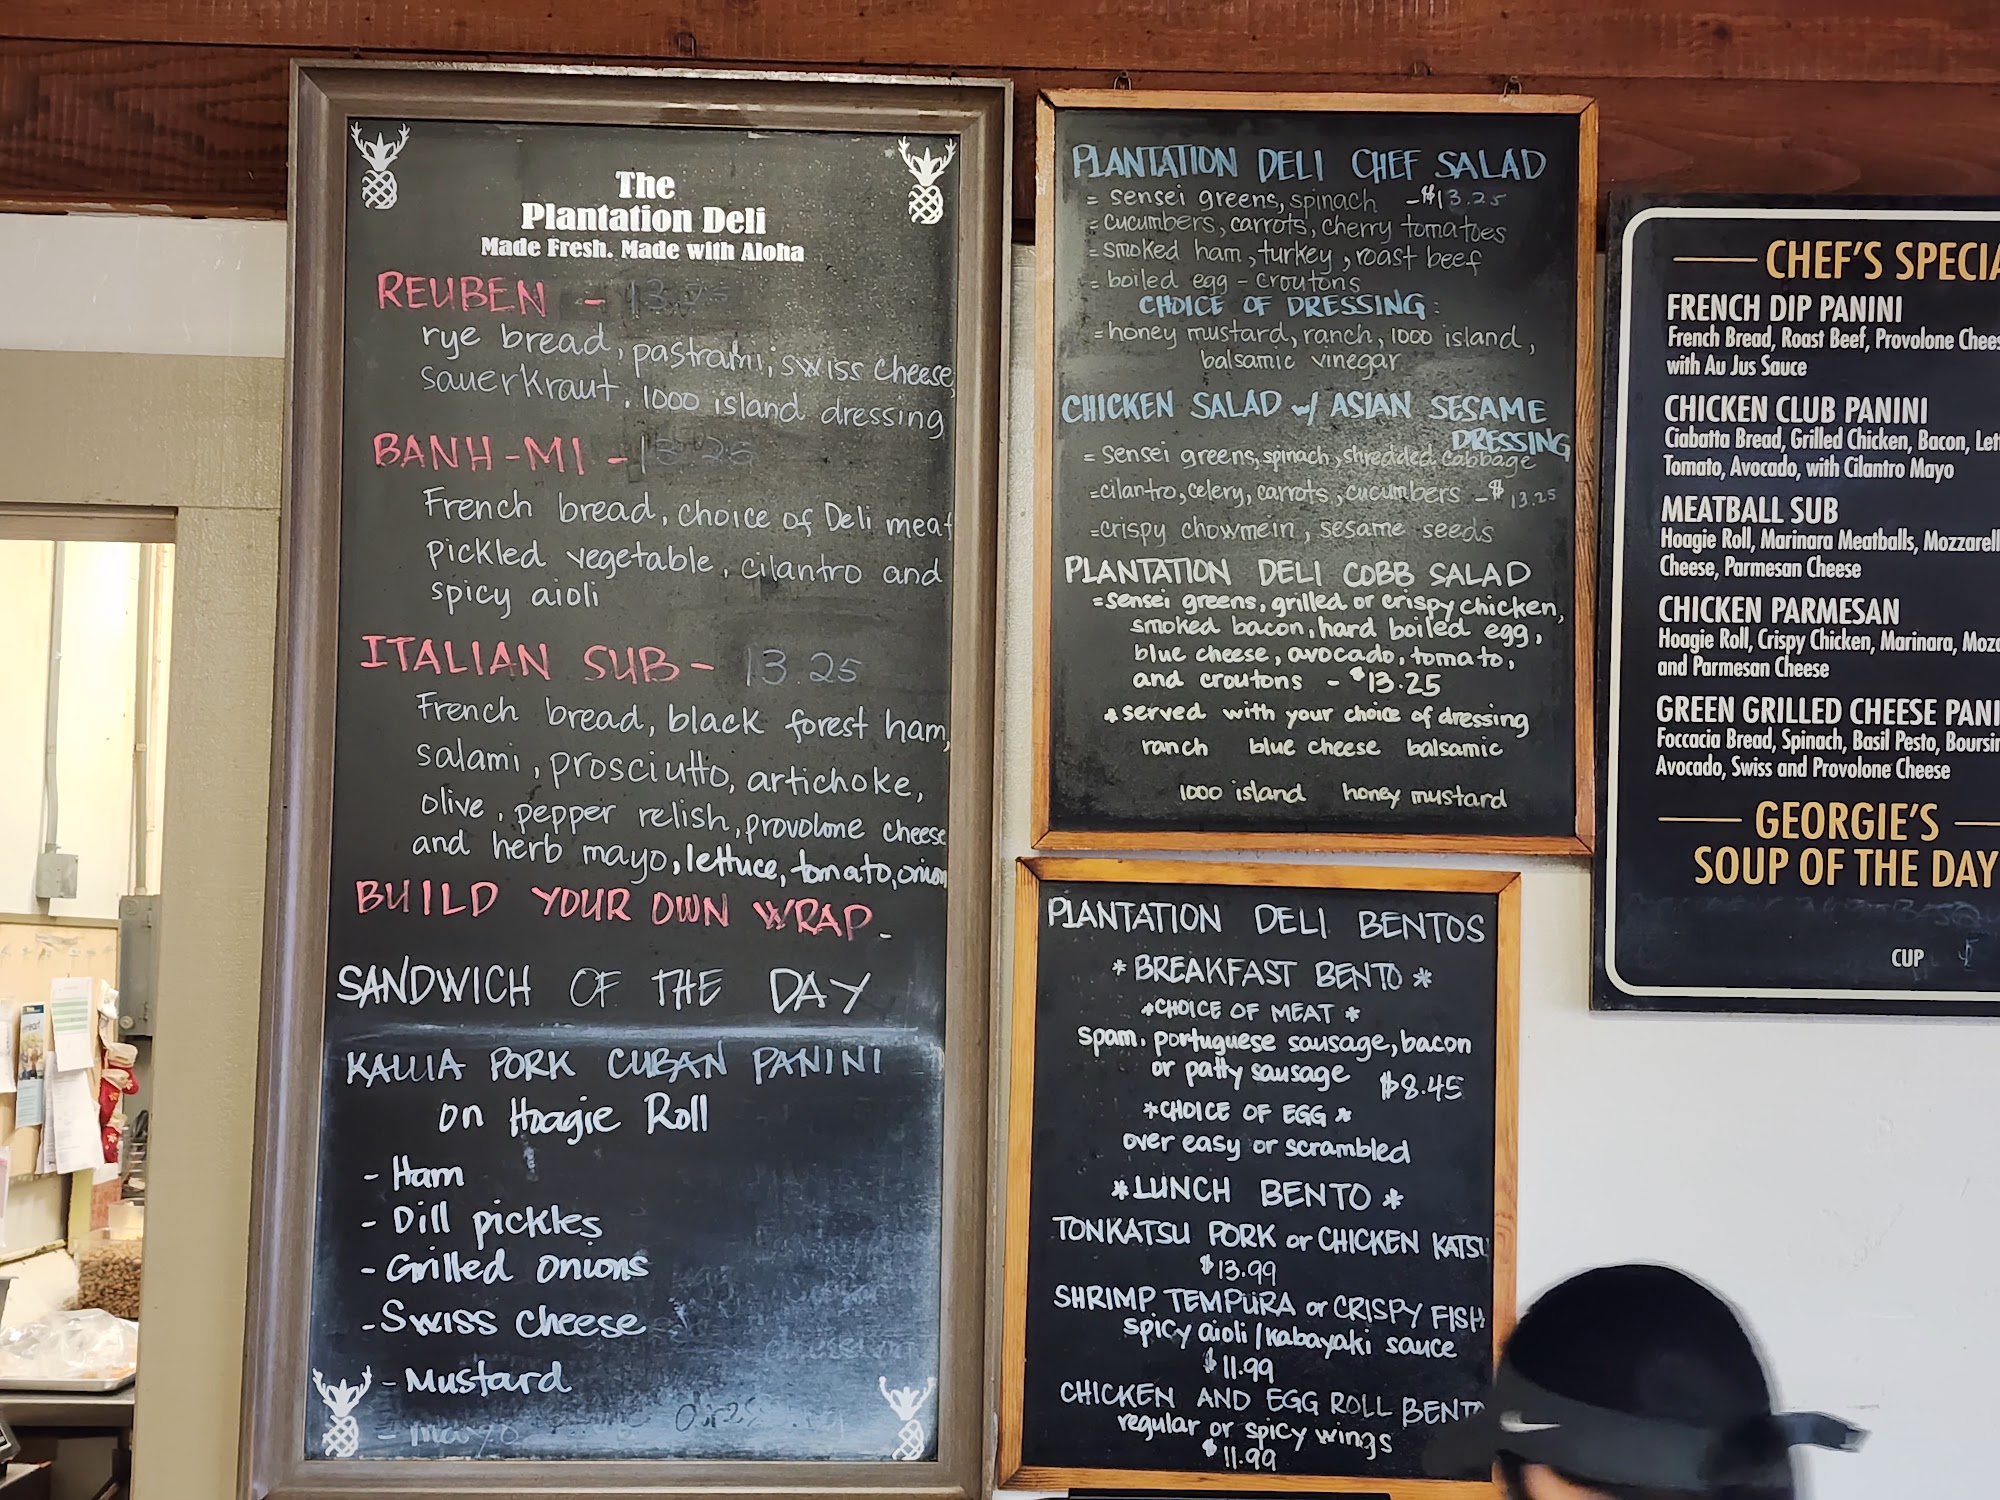 The
Plantation Deli
Made Fresh. Made with Aloha
REUBEN - 13.25
rye bread, pastrami, swiss cheese,
sauerkraut, 1000 island dressing
BANH-MI - 13.25
French bread, choice of Deli meat
pickled vegetable, cilantro and
spicy aioli
ITALIAN SUB - 13.25
French bread, black forest ham,
salami, prosciutto, artichoke,
olive, pepper relish, provolone cheese
and herb mayo, lettuce, tomato, onion
BUILD YOUR OWN WRAP
SANDWICH OF THE DAY
KALUA PORK CUBAN PANINI
on Hoagie Roll
- Ham
- Dill pickles
- Grilled onions
- Swiss cheese
- Mustard
- mayo
PLANTATION DELI CHEF SALAD
= sensei greens, spinach - $13.25
= cucumbers, carrots, cherry tomatoes
= smoked ham, turkey, roast beef
= boiled egg - croutons
CHOICE OF DRESSING:
= honey mustard, ranch, 1000 island,
balsamic vinegar
CHICKEN SALAD w/ ASIAN SESAME
DRESSING
= sensei greens, spinach, shredded cabbage
= cilantro, celery, carrots, cucumbers - $13.25
= crispy chowmein, sesame seeds
PLANTATION DELI COBB SALAD
= sensei greens, grilled or crispy chicken,
smoked bacon, hard boiled egg,
blue cheese, avocado, tomato,
and croutons - $13.25
* served with your choice of dressing
ranch blue cheese balsamic
1000 island honey mustard
PLANTATION DELI BENTOS
* BREAKFAST BENTO *
* CHOICE OF MEAT *
spam, portuguese sausage, bacon
or patty sausage $8.45
* CHOICE OF EGG *
over easy or scrambled
* LUNCH BENTO *
TONKATSU PORK or CHICKEN KATSU
$13.99
SHRIMP TEMPURA or CRISPY FISH
spicy aioli/kabayaki sauce
$11.99
CHICKEN AND EGG ROLL BENTO
regular or spicy wings
$11.99
CHEF'S SPECIA
FRENCH DIP PANINI
French Bread, Roast Beef, Provolone Chees
with Au Jus Sauce
CHICKEN CLUB PANINI
Ciabatta Bread, Grilled Chicken, Bacon, Lett
Tomato, Avocado, with Cilantro Mayo
MEATBALL SUB
Hoagie Roll, Marinara Meatballs, Mozzarell
Cheese, Parmesan Cheese
CHICKEN PARMESAN
Hoagie Roll, Crispy Chicken, Marinara, Moz
and Parmesan Cheese
GREEN GRILLED CHEESE PANI
Foccacia Bread, Spinach, Basil Pesto, Boursin
Avocado, Swiss and Provolone Cheese
GEORGIE'S
SOUP OF THE DAY
CUP